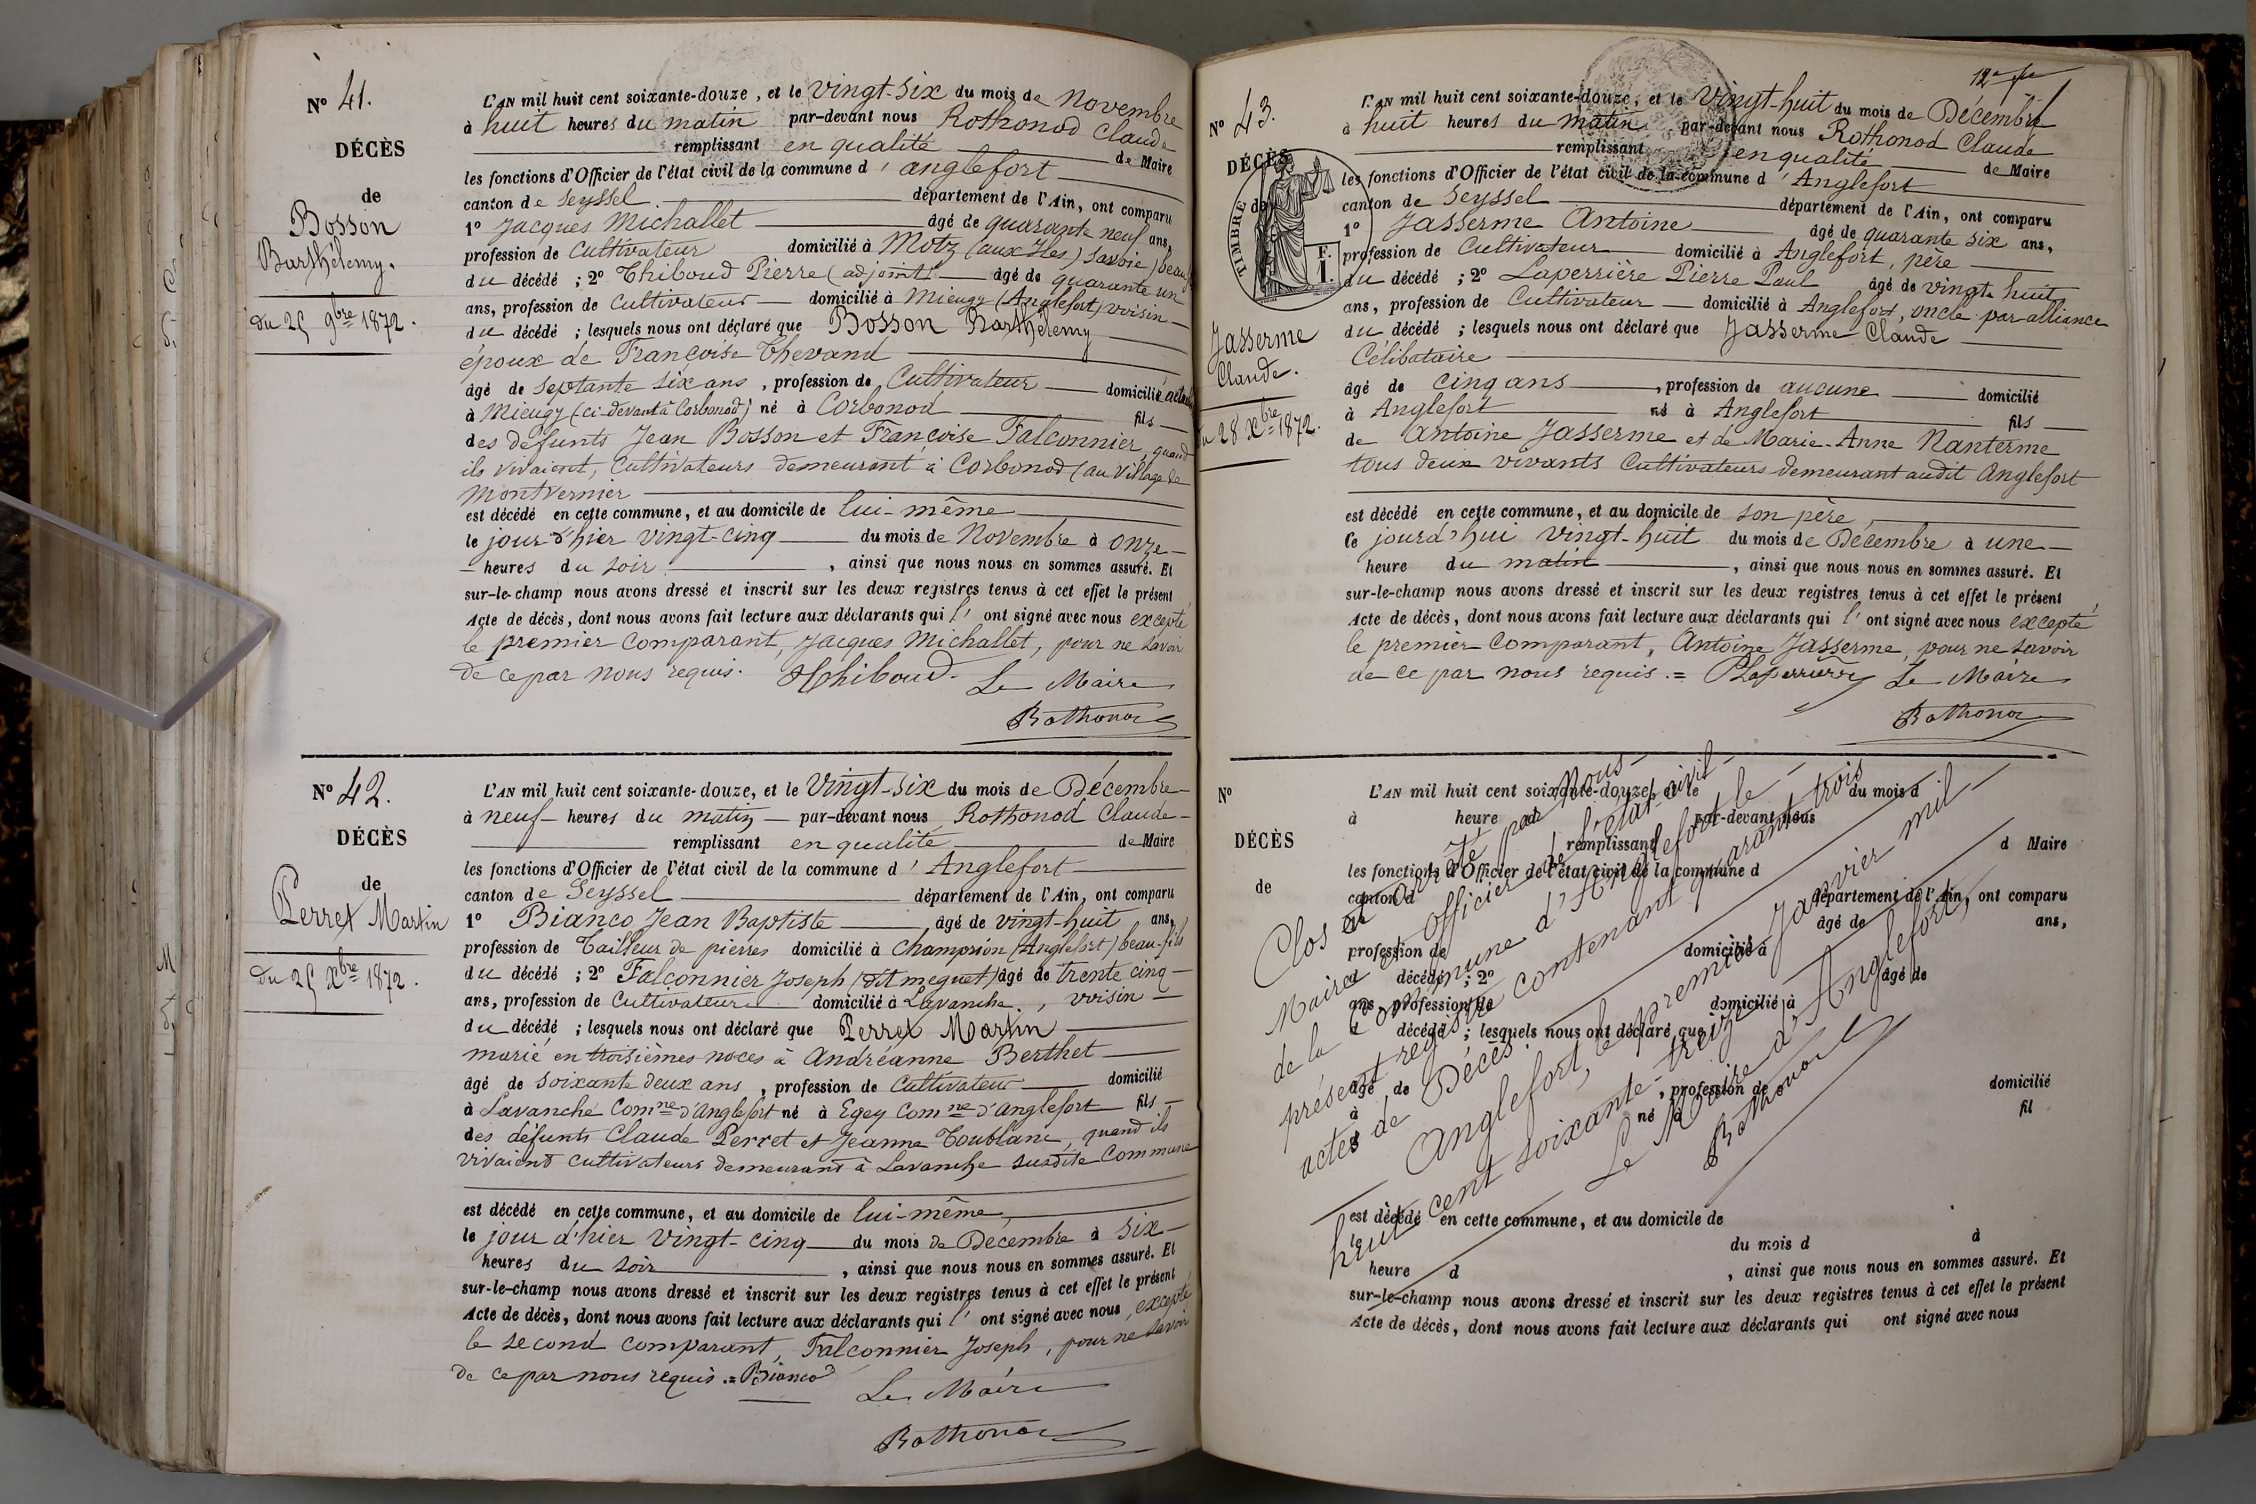 N° 41.
DÉCÈS
de
Bosson
Barthélemy.
du 25 9bre 1872.
L'AN mil huit cent soixante-douze, et le vingt-six du mois de Novembre
à huit heures du matin par-devant nous Rothonod Claude
remplissant en qualité de Maire
les fonctions d'Officier de l'état civil de la commune d'anglefort
canton de Seyssel département de l'Ain, ont comparu
1° Jacques Michallet âgé de quarante neuf ans,
profession de Cultivateur domicilié à Motz (aux Iles) Savoie)
du décédé ; 2° Thiboud Pierre (adjoint) âgé de quarante un
ans, profession de Cultivateur domicilié à Mieugy (Anglefort) voisin
du décédé ; lesquels nous ont déclaré que Bosson Barthélemy
époux de Françoise Thevand
âgé de septante six ans, profession de Cultivateur domicilié
à Mieugy (ci-devant à Corbonod) né à Corbonod fils
des défunts Jean Bosson et Françoise Falconnier, quand
ils vivaient, cultivateurs demeurant à Corbonod (au village de
Montvernier
est décédé en cette commune, et au domicile de lui-même
le jour d'hier vingt-cinq du mois de Novembre à onze
heures du soir, ainsi que nous nous en sommes assuré. Et
sur-le-champ nous avons dressé et inscrit sur les deux registres tenus à cet effet le présent
Acte de décès, dont nous avons fait lecture aux déclarants qui l'ont signé avec nous excepté
le premier comparant, Jacques Michallet, pour ne savoir
de ce par nous requis. Thiboud. Le Maire
Rothonod
N° 42.
DÉCÈS
de
Perret Martin
du 25 Xbre 1872.
L'AN mil huit cent soixante-douze, et le vingt-six du mois de Décembre
à neuf heures du matin par-devant nous Rothonod Claude
remplissant en qualité de Maire
les fonctions d'Officier de l'état civil de la commune d'Anglefort
canton de Seyssel département de l'Ain, ont comparu
1° Bianco Jean Baptiste âgé de vingt-huit ans,
profession de Tailleur de pierres domicilié à Champrion (Anglefort) beau-fils
du décédé ; 2° Falconnier Joseph (dit meguet) âgé de trente cinq
ans, profession de Cultivateur domicilié à Lavanche, voisin
du décédé ; lesquels nous ont déclaré que Perret Martin
marié en troisièmes noces à Andréanne Berthet
âgé de soixante deux ans, profession de Cultivateur domicilié
à Lavanche Comne d'Anglefort né à Egey Comne d'Anglefort fils
des défunts Claude Perret et Jeanne Toublanc, quand ils
vivaient cultivateurs demeurant à Lavanche susdite Commune
est décédé en cette commune, et au domicile de lui-même,
le jour d'hier vingt-cinq du mois de Décembre à six
heures du soir, ainsi que nous nous en sommes assuré. Et
sur-le-champ nous avons dressé et inscrit sur les deux registres tenus à cet effet le présent
Acte de décès, dont nous avons fait lecture aux déclarants qui l'ont signé avec nous, excepté
le second comparant, Falconnier Joseph, pour ne savoir
de ce par nous requis.= Bianco
Le Maire
Rothonod
N° 43.
DÉCÈS
de
TIMBRE
F.
1.
Jasserme
Claude.
28 Xbre 1872.
L'AN mil huit cent soixante-douze, et le vingt-huit du mois de Décembre
à huit heures du matin par-devant nous Rothonod Claude
remplissant en qualité de Maire
les fonctions d'Officier de l'état civil de la commune d'Anglefort
canton de Seyssel département de l'Ain, ont comparu
1° Jasserme Antoine âgé de quarante six ans,
profession de Cultivateur domicilié à Anglefort, père
du décédé ; 2° Laperrière Pierre Paul âgé de vingt huit
ans, profession de Cultivateur domicilié à Anglefort, oncle par alliance
du décédé ; lesquels nous ont déclaré que Jasserme Claude
Célibataire
âgé de cinq ans, profession de aucune domicilié
à Anglefort né à Anglefort fils
de Antoine Jasserme et de Marie-Anne Nanterme
tous deux vivants cultivateurs demeurant audit Anglefort
est décédé en cette commune, et au domicile de son père,
le jourd'hui vingt-huit du mois de Décembre à une
heure du matin, ainsi que nous nous en sommes assuré. Et
sur-le-champ nous avons dressé et inscrit sur les deux registres tenus à cet effet le présent
Acte de décès, dont nous avons fait lecture aux déclarants qui l'ont signé avec nous excepté
le premier comparant, Antoine Jasserme, pour ne savoir
de ce par nous requis.= PLaperrière Le Maire
Rothonod
N°
DÉCÈS
de
L'AN mil huit cent soixante-douze, et le du mois d
à heure d par-devant nous
remplissant
d Maire
les fonctions d'Officier de l'état civil de la commune d
canton d département de l'Ain, ont comparu
âgé de ans,
profession de domicilié à
d décédé ; 2° âgé de
ans, profession de domicilié à
d décédé ; lesquels nous ont déclaré que
âgé de , profession de domicilié
à né à fil
d
est décédé en cette commune, et au domicile de
le du mois d à
heure d , ainsi que nous nous en sommes assuré. Et
sur-le-champ nous avons dressé et inscrit sur les deux registres tenus à cet effet le présent
Acte de décès, dont nous avons fait lecture aux déclarants qui ont signé avec nous
Clos et arrêté par Nous
Maire et officier de l'état civil
de la Commune d'Anglefort le
présent registre contenant quarante trois
actes de Décès.
Anglefort, le premier Janvier mil
huit cent soixante-treize
Le Maire d'Anglefort,
Rothonod